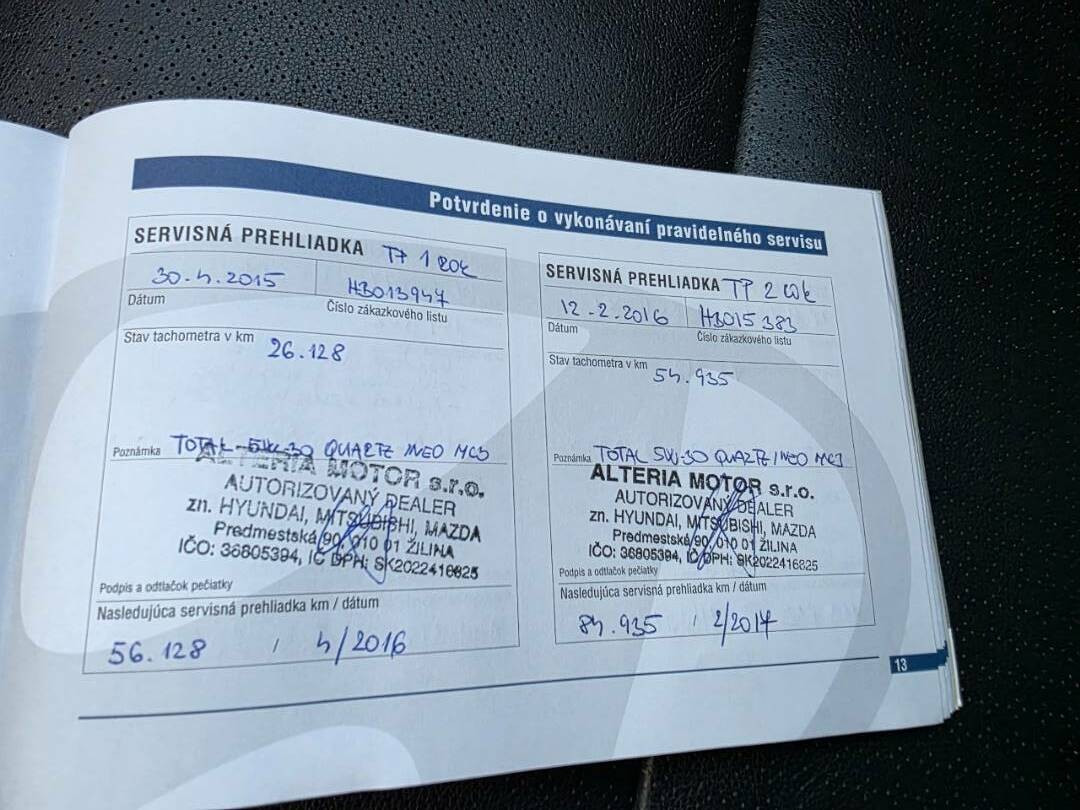 Potvrdenie o vykonávaní pravidelného servisu
SERVISNÁ PREHLIADKA TP 1 ROK
30.4.2015 HB013947
Dátum Číslo zákazkového listu
Stav tachometra v km 26.128
Poznámka TOTAL 5W-30 QUARTZ INEO MC3
ALTERIA MOTOR s.r.o.
AUTORIZOVANÝ DEALER
zn. HYUNDAI, MITSUBISHI, MAZDA
Predmestská 90, 010 01 ŽILINA
IČO: 36805394, IČ DPH: SK2022416825
Podpis a odtlačok pečiatky
Nasledujúca servisná prehliadka km / dátum
56.128 / 4/2016
SERVISNÁ PREHLIADKA TP 2 ROK
12.2.2016 HB015383
Dátum Číslo zákazkového listu
Stav tachometra v km 54.935
Poznámka TOTAL 5W-30 QUARTZ INEO MC3
ALTERIA MOTOR s.r.o.
AUTORIZOVANÝ DEALER
zn. HYUNDAI, MITSUBISHI, MAZDA
Predmestská 90, 010 01 ŽILINA
IČO: 36805394, IČ DPH: SK2022416825
Podpis a odtlačok pečiatky
Nasledujúca servisná prehliadka km / dátum
84.935 / 2/2017
13